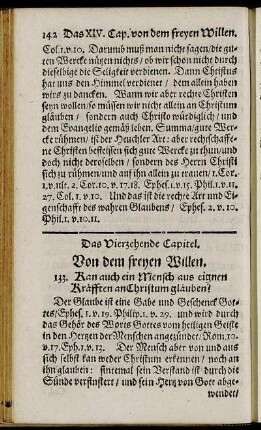 142 Das XIV. Cap. von dem freyen Willen.
Col.1.v.10. Darumb muß man nicht sagen/die gu-
ten Wercke nützen nichts/ ob wir schon nicht durch
dieselbige die Seligkeit verdienen. Dann Christus
hat uns den Himmel verdienet/ dem allein haben
wirs zu dancken. Wann wir aber rechte Christen
seyn wollen/so müssen wir nicht allein an Christum
gläuben/ sondern auch Christo würdiglich/ und
dem Evangelio gemäß leben. Summa/gute Wer-
cke rühmen/ ist der Heuchler Art: aber rechtschaffe-
ne Christen befleissen sich gute Werck zu thun/und
doch nicht derselben/ sondern des Herrn Christi
sich zu rühmen/und auf ihn allein zu trauen/1.Cor.
1.v.ult. 2. Cor.10. v. 17.18. Ephes.1.v.15. Phil.1.v.11.
27. Col. 1. v.10. Und das ist die rechte Art und Ei-
genschafft des wahren Glaubens/ Ephes. 2. v. 10.
Phil.1. v.10.11.
Das Vierzehende Capitel.
Von dem freyen Willen.
133. Kan auch ein Mensch aus eignen
Kräfften an Christum gläuben?
Der Glaube ist eine Gabe und Geschenck Got-
tes/Ephes. 1. v. 19. Philip.1. v. 29. und wird durch
das Gehör des Worts Gottes vom heiligen Geiste
in den Hertzen der Menschen angezündet/Rom.10.
v.17. Eph.1.v. 13. Der Mensch aber von und aus
sich selbst kan weder Christum erkennen/ noch an
ihn gläuben: sintemal sein Verstand ist durch die
Sünde verfinstert/ und sein Hertz von Gott abge-
wendet/